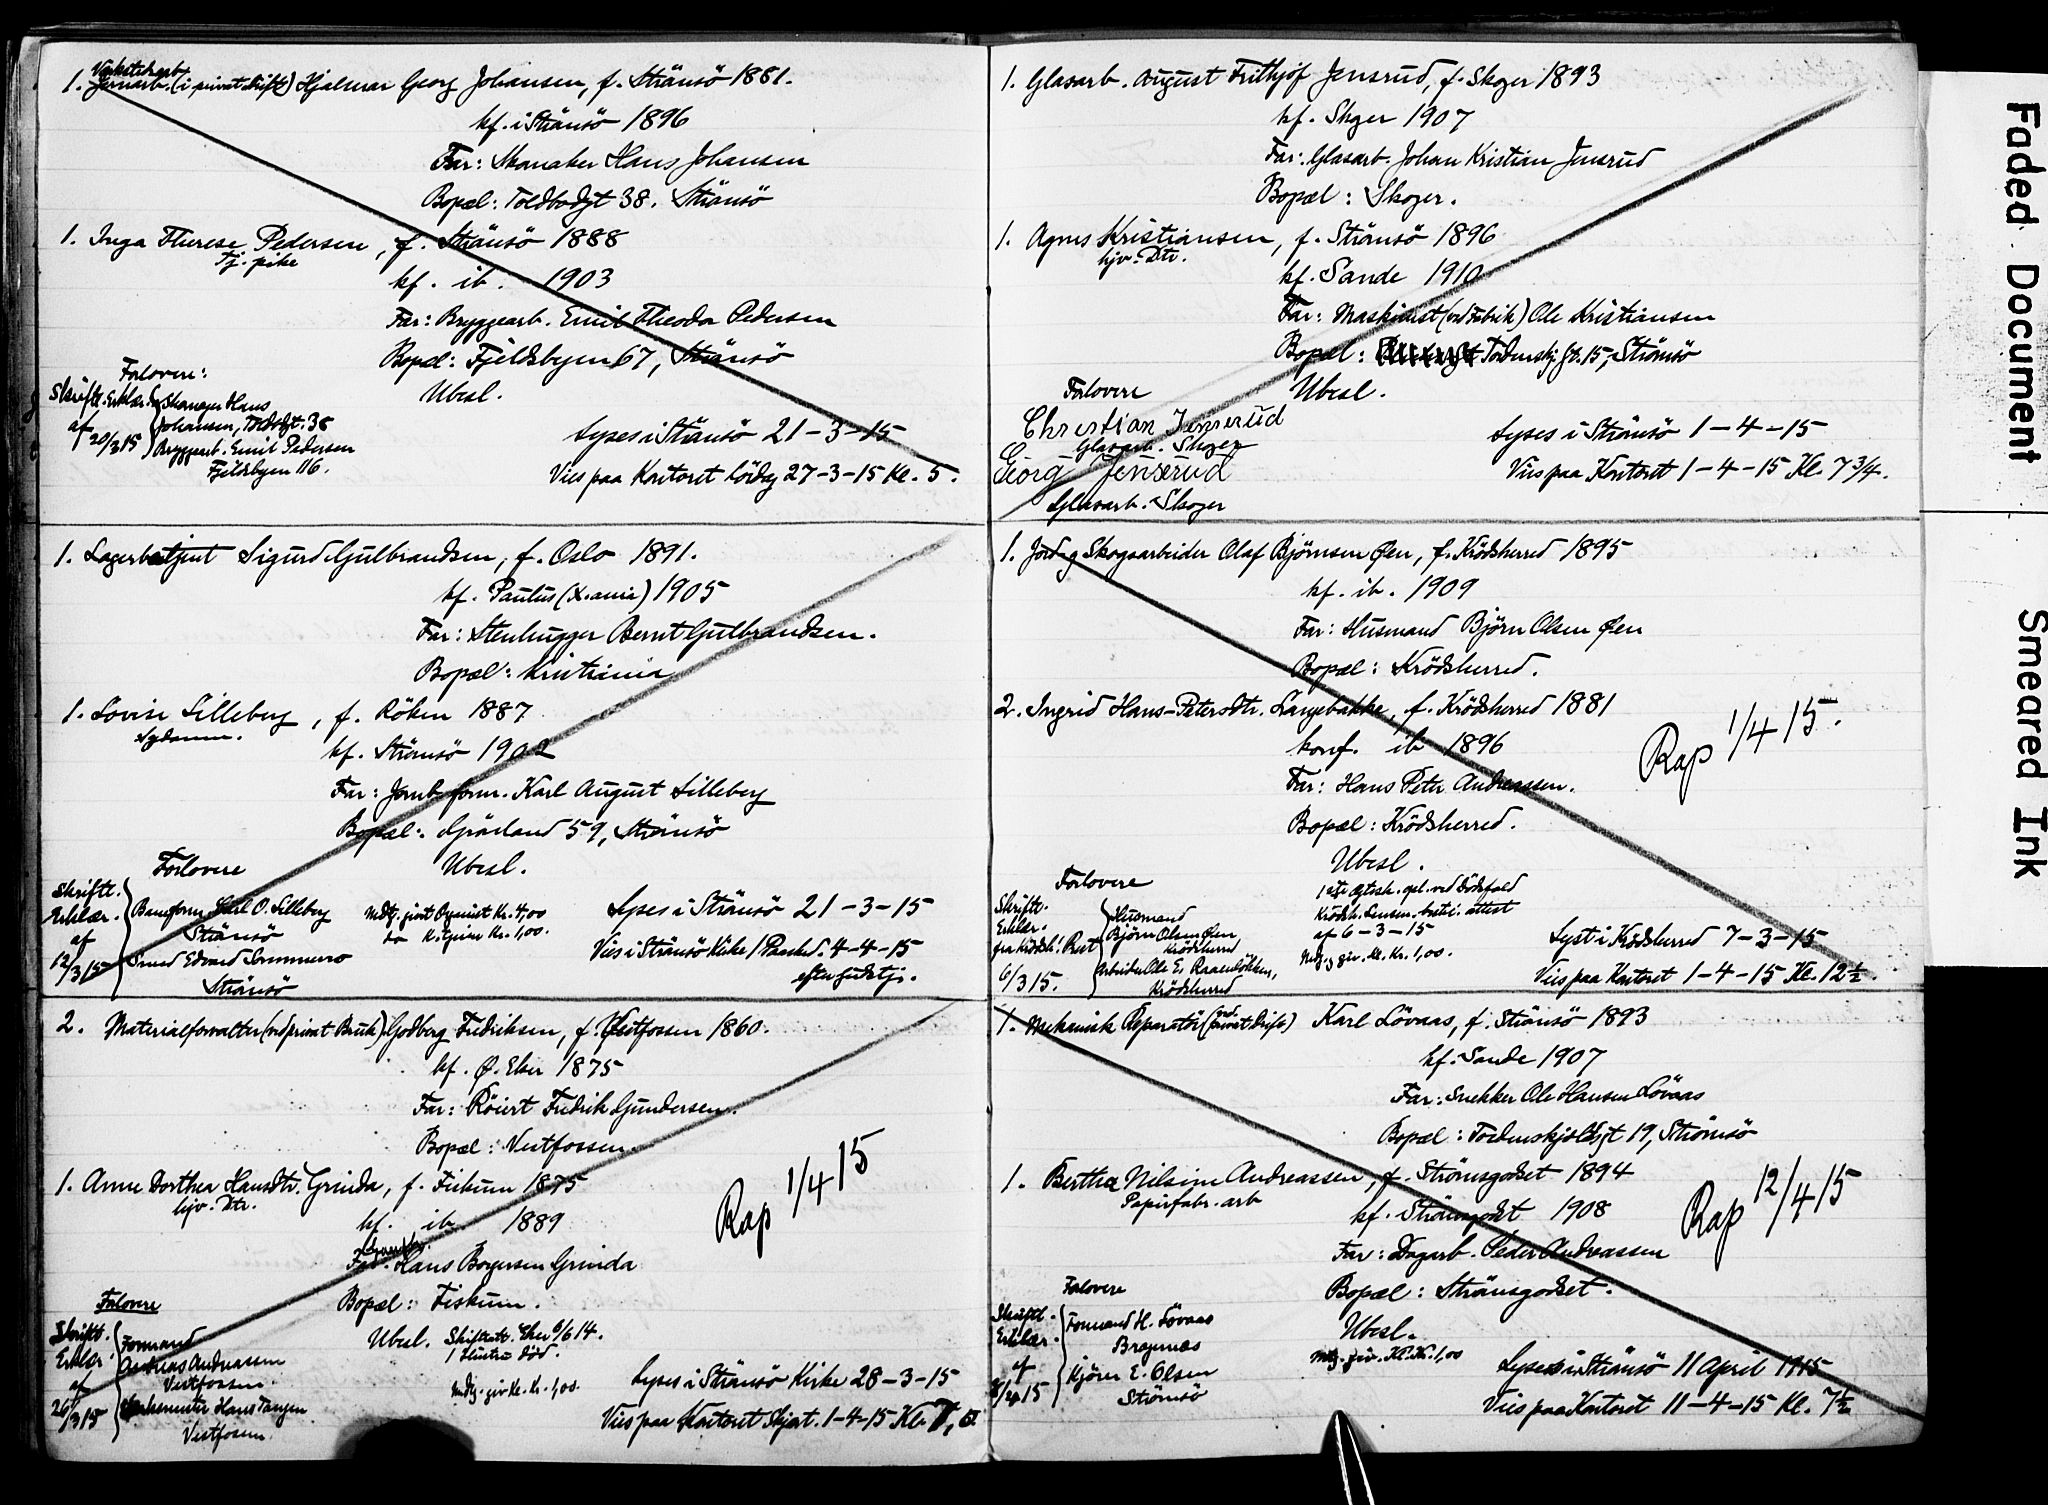 1. Verkstedarb. (i privat drift) Hjalmar Georg Johansen, f. Strömsö 1881.
kf. i Strömsö 1896
Far: Skomaker Hans Johansen
Bopæl: Toldbodgt 38. Strömsö
1. Inga Therese Pedersen, f. Strömsö 1888
Tj. pike
kf. ib. 1903
Far: Bryggearb. Emil Theodor Pedersen
Bopæl: Fjeldsbyen 67, Strömsö
Ubesl.
Forlovere:
Skriftl. Erklær. Skomager Hans
af 20/3 15 Johansen, Toldbgt. 38
Bryggearb. Emil Pedersen
Fjeldsbyen 116.
Lyses i Strömsö 21-3-15
Vies paa Kontoret lördag 27-3-15 Kl. 5.
1. Lagerbetjent Sigurd Gulbrandsen, f. Oslo 1891.
kf. Paulus (X.ania) 1905
Far: Stenhugger Bernt Gulbrandsen.
Bopæl: Kristiania
1. Lovise Lilleberg, f. Röken 1887
Sydame.
kf. Strömsö 1902
Far: Jernb. form. Karl August Lilleberg
Bopæl: Grönland 59, Strömsö
Ubesl.
Forlovere
Skriftl.
Erklær.
af
12/3 15
Baneform. Karl O. Lilleberg
Strömsö
Smed Edvard
Strömsö
Mdtg. Organist Kr. 4,00
do K. Giver Kr. 1,00.
Lyses i Strömsö 21-3-15
Vies i Strömsö Kirke 1 Paaskd. 4-4-15
efter gudstj.
2. Materialforvalter (ved privat Bruk) Godberg Fredriksen, f. Vestfossen 1860.
kf. Ø. Eker 1875
Far: Röiert Fredrik Gundersen.
Bopæl: Vestfossen.
1. Anne Dorthea Hansdtr. Grinda, f. Fiskum 1875
hjv. Dtr.
kf. ib. 1889
Far: Gaardbr. Hans Borgersen Grinda
Bopæl: Fiskum.
Rap 1/4 15
Ubesl. Skifteatt. Eker 6/6 14.
1 Hustru død.
Forlovere
Skriftl.
Erklær.
af
26/3 15
Formand
Andreas Andreassen
Vestfossen.
Verksmester Hans Tangen
Vestfossen.
Mdtg. giv. Kl. Kr. 1,00.
Lyses i Strömsö Kirke 28-3-15
Vies paa Kontoret Skjært. 1-4-15 Kl.
1. Glasarb. August Frithjof Jensrud, f. Skoger 1893
kf. Skger 1907
Far: Glasarb. Johan Kristian Jensrud
Bopæl: Skoger.
1. Agnes Kristiansen, f. Strömsö 1896
hjv. Dtr.
kf. Sande 1910
Far: Maskinist (ved Fabrik) Ole Kristiansen
Bopæl: Tordenskj. Gt. 15, Strömsö
Ubesl.
Forlovere
Christian Jenserud
Glasarb. Skoger
Georg Jenserud
Glasarb. Skoger
Lyses i Strömsö 1-4-15
Vies paa Kontoret 1-4-15 Kl. 7 3/4.
1. Jord og Skogsarbeider Olaf Björnsen Øen, f. Krödsherred 1895
kf. ib. 1909
Far: Husmand Björn Olsen Øen
Bopæl: Krödsherred.
2. Ingrid Hans-Petersdtr. Langebakke, f. Krödsherred 1881
konf. ib 1896
Far: Hans Peter Andreassen.
Bopæl: Krödsherred.
Rap 1/4 15.
Ubesl.
1ste Ægtesk. opl. ved Dödsfald
Krödsh. Lensm. attest
af 6-3-15
Mdtg. giv. Kl. Kr. 1,00.
Forlovere
Skriftl.
Erklær.
fra Krödsh. Prest
6/3 15.
Husmand
Björn Olsen Øen
Krödsherred
Arbeider Ole Er. Raaenlökken,
Krödsherred
Lyst i Krödsherred 7-3-15
Vies paa Kontoret 1-4-15 Kl. 12 1/2.
1. Mekanisk Reparatör (ved privat Drift) Karl Lövaas, f. Strömsö 1893
kf. Sande 1907
Far: Snekker Ole Hansen Lövaas
Bopæl: Tordenskjoldsgt 19, Strömsö
1. Berthea Nilsine Andreassen, f. Strömsgodset 1894
Papirfabr. arb
kf. i Strömsgodset 1908
Far: Dagarb. Peder Andreassen
Bopæl: Strömsgodset.
Rap 12/4 15
Ubesl.
Mdtg. giv. Kl. Kr. 1,00
Forlovere
Skriftl.
Erklær.
af
8/4 15
Formand H. Lövaas
Bragernæs
Kjörer E. Olsen
Strömsö
Lyses i Strömsö 11 April 1915
Vies paa Kontoret 11-4-15 Kl. 7 1/2
Faded Document
Smeared Ink